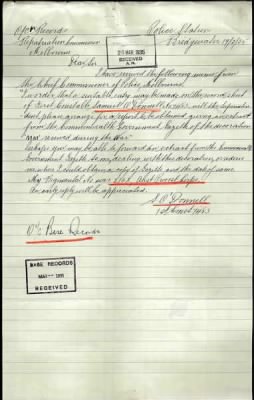 O/C Records
Police Station
Repatriation Commission
Bridgewater 18/3/35
Melbourne
20 MAR 1935
RECEIVED
A.M.
Dear Sir
I have received the following memo from
the Chief Commissioner of Police, Melbourne
"In order that a suitable entry may be made on the record sheet
of First Constable Samuel O'Donnell will the Superinten
dent please arrange for a report to be obtained giving an extract
from the Commonwealth Government Gazette of the decoration
received during the War
Perhaps you may be able to forward an extract from the Commonwealth
Government Gazette to me, dealing with this decoration, or advise
me where I could obtain a copy of Gazette and the date of same
My Regimental No was
An early reply will be appreciated.
S O'Donnell
1st Const 7453
O/C Base Records
BASE RECORDS
MAR 1935
RECEIVED